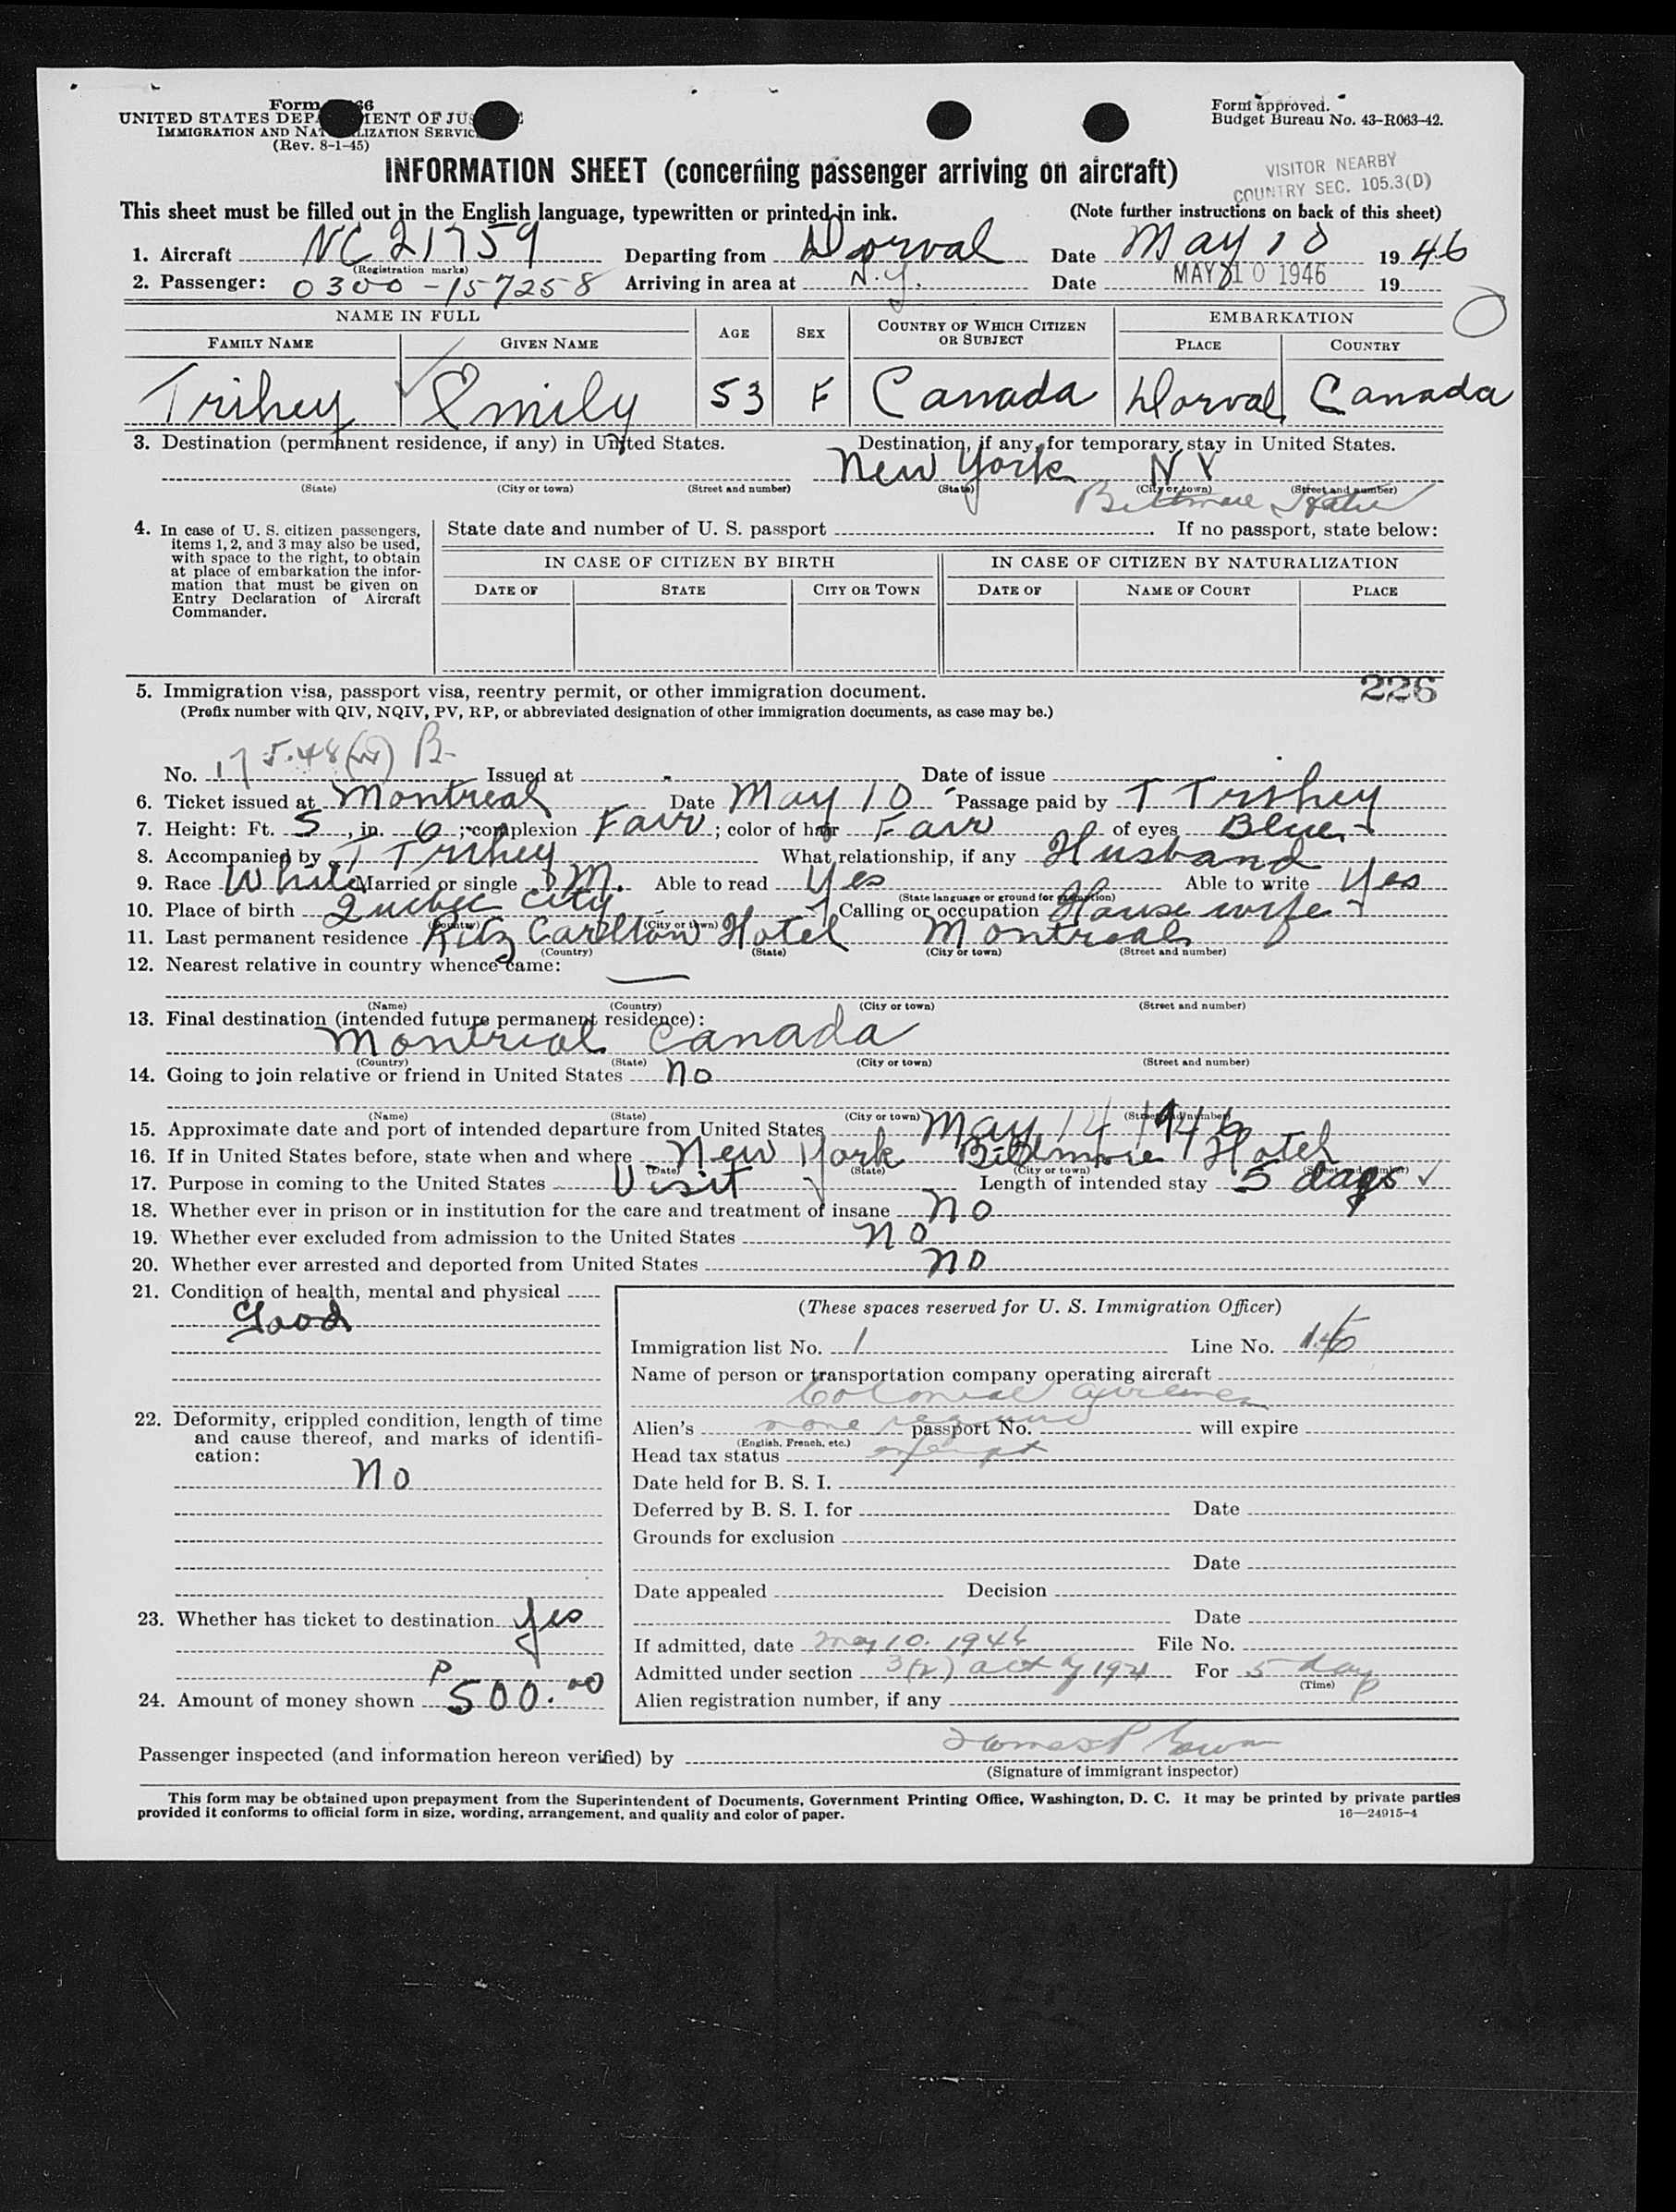 Form 66
UNITED STATES DEP MENT OF JUS
IMMIGRATION AND NAT LIZATION SERVIC
(Rev. 8-1-45)
Form approved.
Budget Bureau No. 43-R063-42.
INFORMATION SHEET (concerning passenger arriving on aircraft)
VISITOR NEARBY
COUNTRY SEC. 105.3(D)
This sheet must be filled out in the English language, typewritten or printed in ink. (Note further instructions on back of this sheet)
1. Aircraft NC 21759 Departing from Dorval Date May 10 1946
(Registration marks)
2. Passenger: 0300-157258 Arriving in area at N.Y. Date MAY 10 1946 19
NAME IN FULL AGE SEX COUNTRY OF WHICH CITIZEN OR SUBJECT EMBARKATION
FAMILY NAME GIVEN NAME PLACE COUNTRY
Trihey Emily 53 F Canada Dorval Canada
3. Destination (permanent residence, if any) in United States. Destination, if any, for temporary stay in United States.
New York NY
(State) (City or town) (Street and number) (State) (City or town) (Street and number)
Biltmore Hotel
4. In case of U. S. citizen passengers, items 1, 2, and 3 may also be used, with space to the right, to obtain at place of embarkation the information that must be given on Entry Declaration of Aircraft Commander.
State date and number of U. S. passport If no passport, state below:
IN CASE OF CITIZEN BY BIRTH IN CASE OF CITIZEN BY NATURALIZATION
DATE OF STATE CITY OR TOWN DATE OF NAME OF COURT PLACE
226
5. Immigration visa, passport visa, reentry permit, or other immigration document.
(Prefix number with QIV, NQIV, PV, RP, or abbreviated designation of other immigration documents, as case may be.)
No. 175.48 B Issued at Date of issue
6. Ticket issued at Montreal Date May 10 Passage paid by T Trihey
7. Height: Ft. 5, in. 6; complexion Fair; color of hair Fair of eyes Blue
8. Accompanied by T Trihey What relationship, if any Husband
9. Race White Married or single M. Able to read Yes Able to write Yes
(State language or ground for exemption)
10. Place of birth Quebec City Calling or occupation House wife
(Country) (City or town)
11. Last permanent residence Ritz Carlton Hotel Montreal
(Country) (State) (City or town) (Street and number)
12. Nearest relative in country whence came: —
(Name) (Country) (City or town) (Street and number)
13. Final destination (intended future permanent residence):
Montreal Canada
(Country) (State) (City or town) (Street and number)
14. Going to join relative or friend in United States No
(Name) (State) (City or town) (Street and number)
15. Approximate date and port of intended departure from United States May 14 1946
16. If in United States before, state when and where New York Biltmore Hotel
(Date) (State) (City or town) (Street and number)
17. Purpose in coming to the United States Visit Length of intended stay 5 days
18. Whether ever in prison or in institution for the care and treatment of insane No
19. Whether ever excluded from admission to the United States No
20. Whether ever arrested and deported from United States No
21. Condition of health, mental and physical
Good
22. Deformity, crippled condition, length of time and cause thereof, and marks of identification:
No
23. Whether has ticket to destination Yes
P
24. Amount of money shown 500.00
(These spaces reserved for U. S. Immigration Officer)
Immigration list No. 1 Line No.
Name of person or transportation company operating aircraft
Colonial Airlines
Alien's none required passport No. will expire
(English, French, etc.)
Head tax status exempt
Date held for B. S. I.
Deferred by B. S. I. for Date
Grounds for exclusion
Date
Date appealed Decision
Date
If admitted, date May 10. 1946 File No.
Admitted under section 3(2) act of 1924 For 5 days
(Time)
Alien registration number, if any
Passenger inspected (and information hereon verified) by
(Signature of immigrant inspector)
This form may be obtained upon prepayment from the Superintendent of Documents, Government Printing Office, Washington, D. C. It may be printed by private parties
provided it conforms to official form in size, wording, arrangement, and quality and color of paper. 16—24915-4